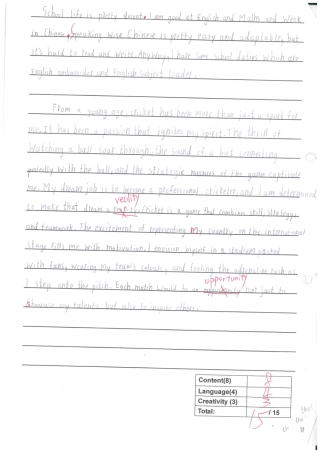 School life is pretty decent. I am good at English and Maths and Weak
in Chinese, Speaking wise Chinese is pretty easy and adaptable, but
it's hard to read and write. Anyway, I have some school duties which are
English ambassador and English Subject leader.
From a young age, cricket has been more than just a sport for
me. It has been a passion that ignites my spirit. The thrill of
watching a ball soar through, the sound of a bat connecting
perfectly with the ball, and the strategic nuances of the game captivate
me. My dream job is to become a professional cricketer, and I am determined
reality
to make that dream a Cricket is a game that combines skill, strategy,
and teamwork. The excitement of representing My country on the international
stage fills me with motivation. I envision myself in a stadium packed
with fans, wearing my team's colours, and feeling the adrenaline rush as
opportunity
I step onto the pitch. Each match would be an not just to
showcase my talents but also to inspire others.
Content(8) 8
Language(4) 4
Creativity (3) 3
Total: 15 / 15
15